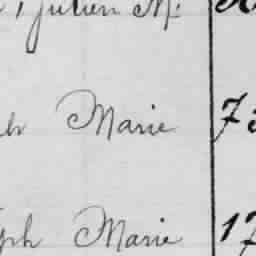 Julien M.
Marie 7
ph Marie 17